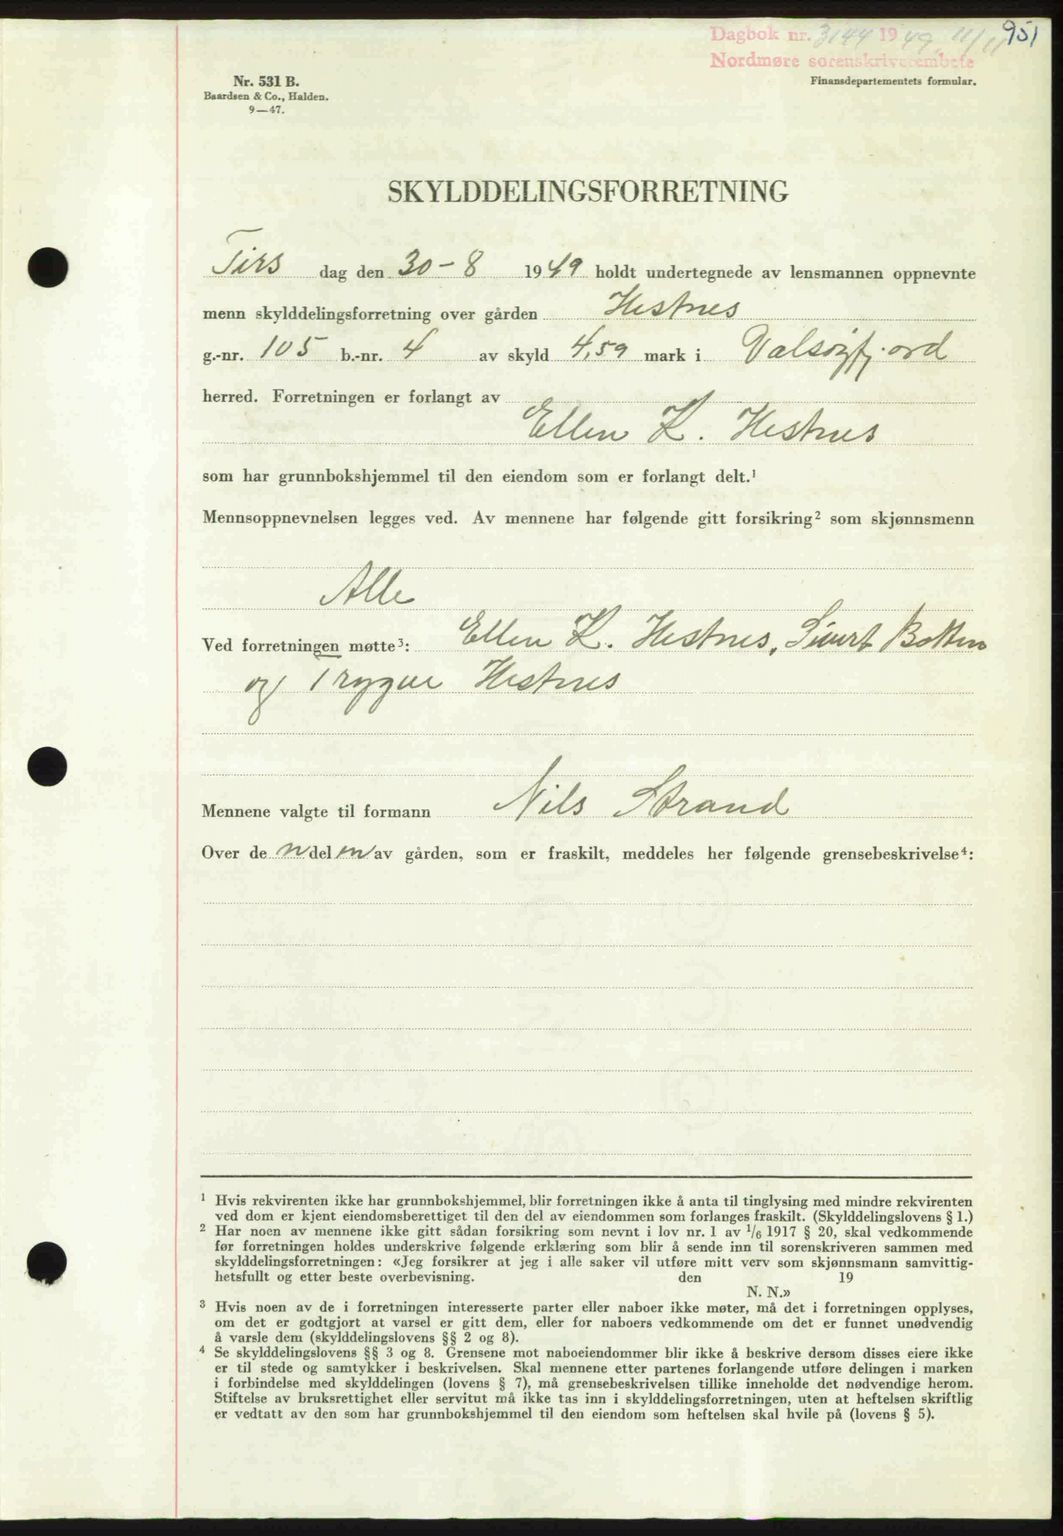 951
Dagbok nr. 3144 1949, 11/11
Nordmøre sorenskriverembete
Nr. 531 B.
Baardsen & Co., Halden.
9—47.
Finansdepartementets formular.
SKYLDDELINGSFORRETNING
Tirs dag den 30-8 1949 holdt undertegnede av lensmannen oppnevnte
menn skylddelingsforretning over gården Hestnes
g.-nr. 105 b.-nr. 4 av skyld 4,59 mark i Valsøyfjord
herred. Forretningen er forlangt av
Ellen K. Hestnes
som har grunnbokshjemmel til den eiendom som er forlangt delt.¹
Mennsoppnevnelsen legges ved. Av mennene har følgende gitt forsikring² som skjønnsmenn
Alle
Ved forretningen møtte³: Ellen K. Hestnes, Sivert Botten
og Trygve Hestnes
Mennene valgte til formann Nils Strand
Over de n del en av gården, som er fraskilt, meddeles her følgende grensebeskrivelse⁴:
¹ Hvis rekvirenten ikke har grunnbokshjemmel, blir forretningen ikke å anta til tinglysing med mindre rekvirenten
ved dom er kjent eiendomsberettiget til den del av eiendommen som forlanges fraskilt. (Skylddelingslovens § 1.)
² Har noen av mennene ikke gitt sådan forsikring som nevnt i lov nr. 1 av 1/6 1917 § 20, skal vedkommende
før forretningen holdes underskrive følgende erklæring som blir å sende inn til sorenskriveren sammen med
skylddelingsforretningen: «Jeg forsikrer at jeg i alle saker vil utføre mitt verv som skjønnsmann samvittig-
hetsfullt og etter beste overbevisning. den 19
N. N.»
³ Hvis noen av de i forretningen interesserte parter eller naboer ikke møter, må det i forretningen opplyses,
om det er godtgjort at varsel er gitt dem, eller for naboers vedkommende om det er funnet unødvendig
å varsle dem (skylddelingslovens §§ 2 og 8).
⁴ Se skylddelingslovens §§ 3 og 8. Grensene mot naboeiendommer blir ikke å beskrive dersom disses eiere ikke
er til stede og samtykker i beskrivelsen. Skal mennene etter partenes forlangende utføre delingen i marken
i forbindelse med skylddelingen (lovens § 7), må grensebeskrivelsen tillike inneholde det nødvendige herom.
Stiftelse av bruksrettighet eller servitut må ikke tas inn i skylddelingsforretningen, uten at heftelsen skriftlig
er vedtatt av den som har grunnbokshjemmel til den eiendom som heftelsen skal hvile på (lovens § 5).